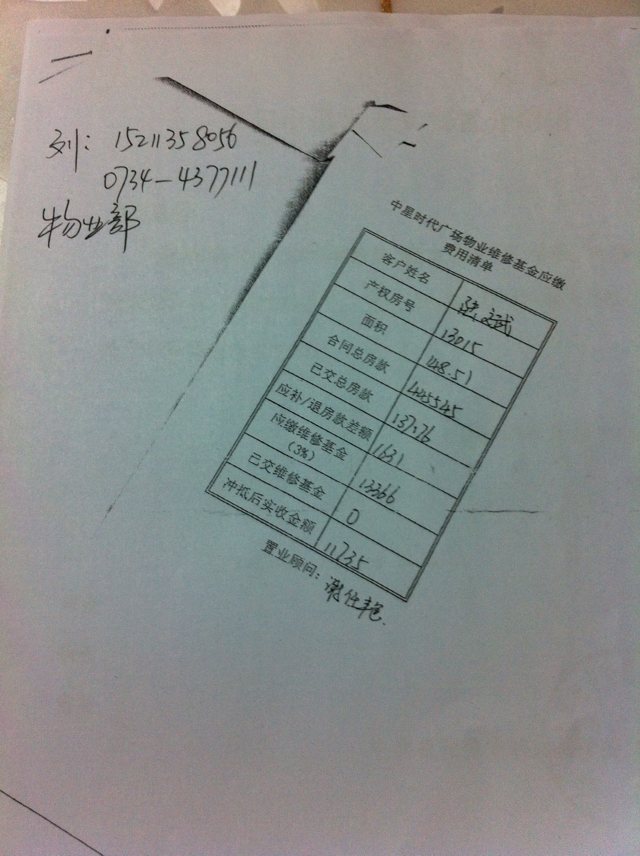 刘：15211358056
0734-4377111
物业部
中星时代广场物业维修基金应缴
费用清单
客户姓名
产权房号 13015
面积 148.51
合同总房款 445545
已交总房款 137.76
应补/退房款差额 1631
应缴维修基金
（3%） 13366
已交维修基金 0
冲抵后实收金额 11735
置业顾问：